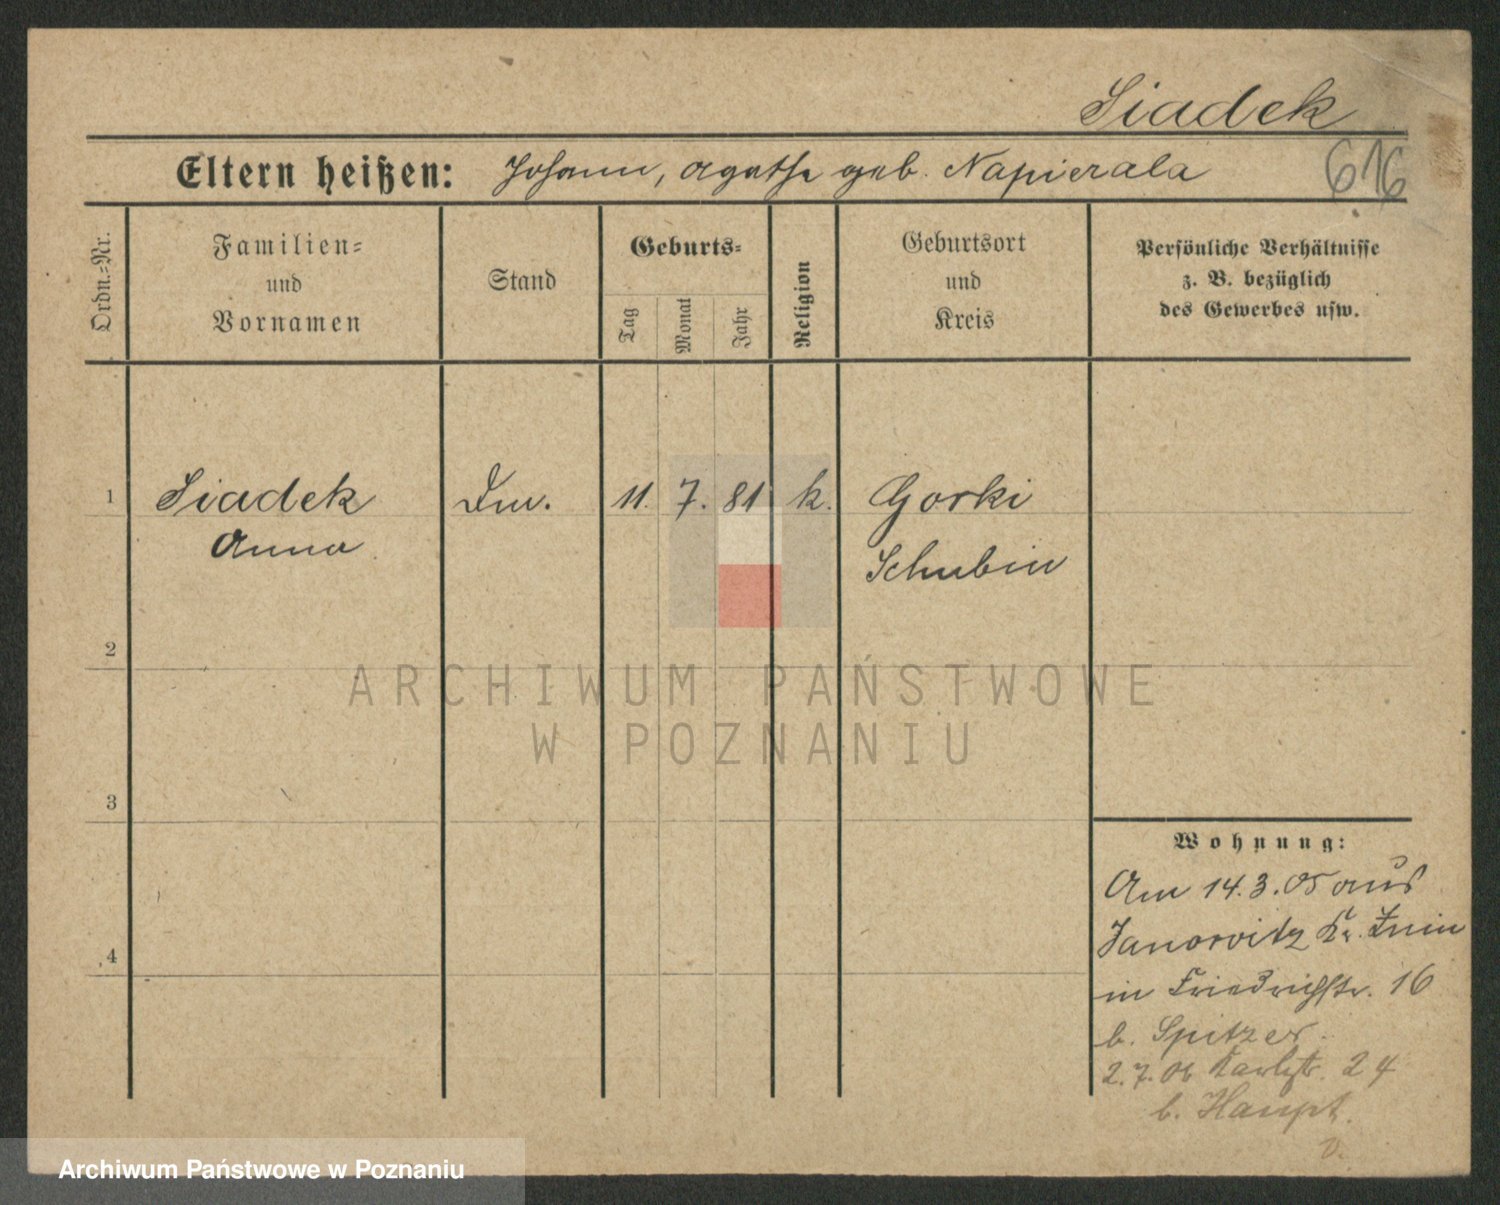 Siadek
Eltern heißen: Johann, Agathe geb. Napierala
616
Ordn.=Nr.
Familien=
und
Vornamen
Stand
Geburts=
Tag
Monat
Jahr
Religion
Geburtsort
und
Kreis
Persönliche Verhältnisse
z. B. bezüglich
des Gewerbes usw.
1 Siadek 11. 7. 81 k. Gorki
Anna Schubin
2
3
4
Wohnung:
Am 14.3.05 aus
Janowitz Kr. Znin
in Friedrichstr. 16
b. Spitzer.
2.7.06 Karlstr. 24
b. Haupt.
ARCHIWUM PAŃSTWOWE
W POZNANIU
Archiwum Państwowe w Poznaniu